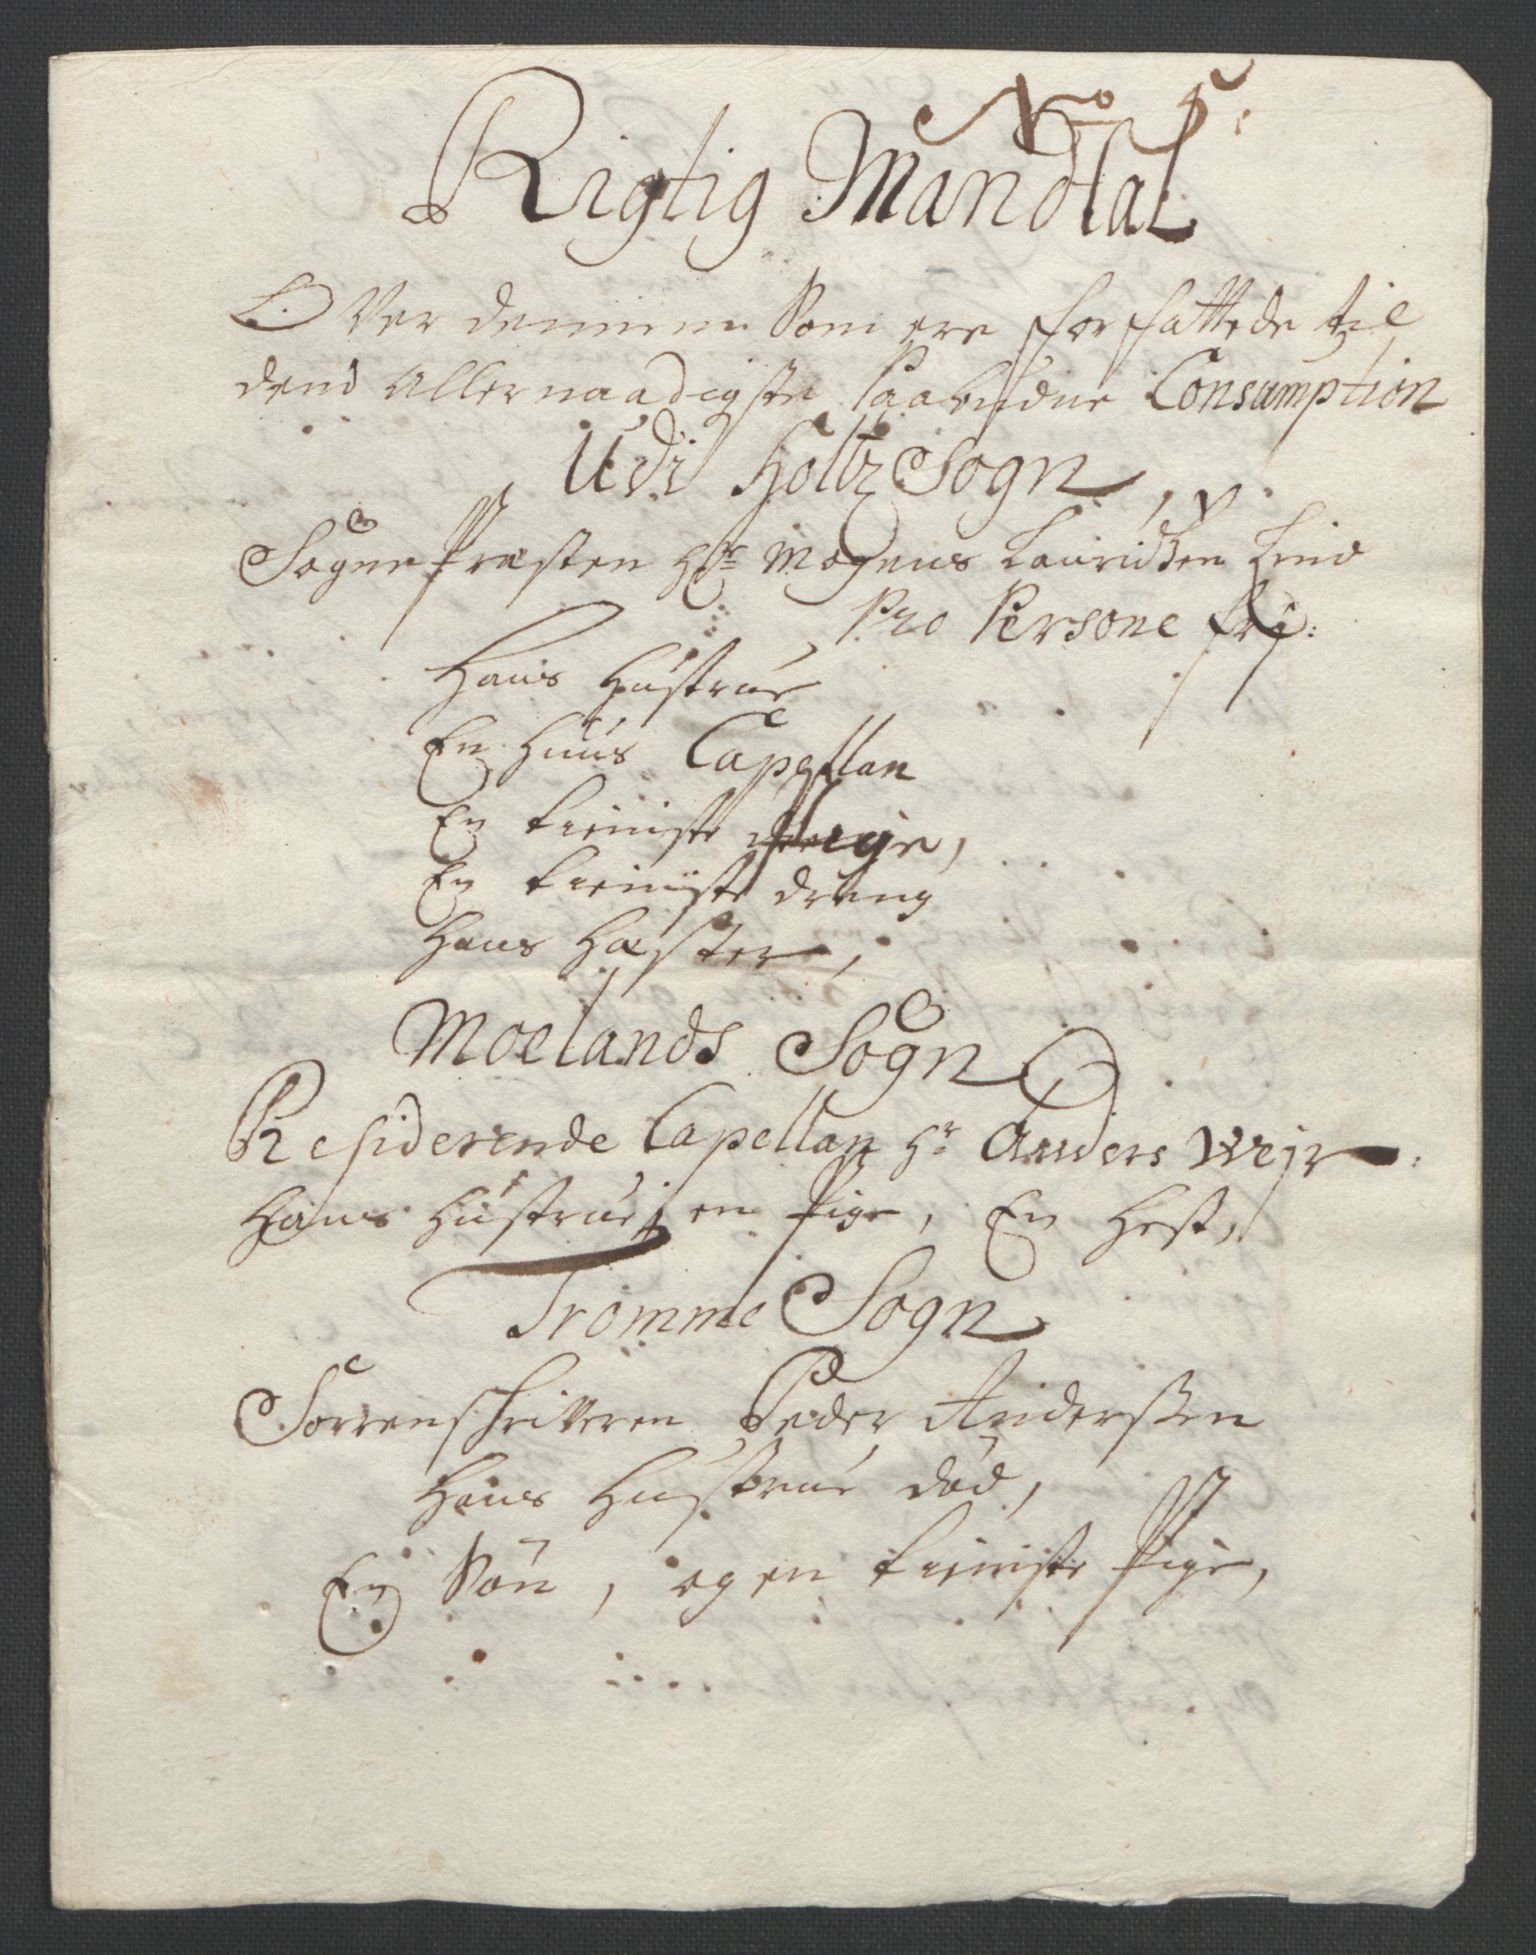 No 5:
Rigtig Mandtal
Over dennem som ere forfattede til
dend Allernaadigste Paabudne Consumption
Udi Holtz Sogn,
Sogne Præsten Hr Mogens Lauridsen Lind
Pro Persone frj:
Hans Hustrue
En Huus Capellan
En tieniste Pige,
En tieniste dreng
Hans Hæster,
Moelands Sogn
Residerende Capellan Hr Anders Wejr
Hans Hustrue, en Pige, En Hest,
Tromme Sogn
Sorrenschriveren Peder Anderssen
Hans Hustrue død,
En Søn, og en tieniste Pige,